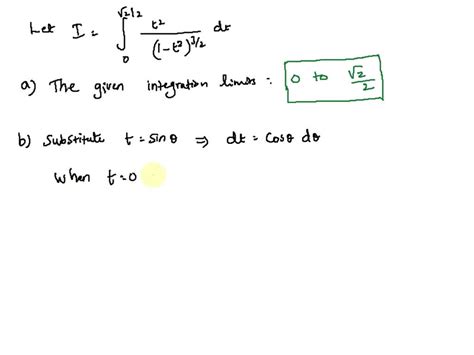 Let I = ∫₀^{√2/2} t²/(1-t²)^{3/2} dt
a) The given integration limits : 0 to √2/2
b) Substitute t = sinθ ⇒ dt = cosθ dθ
When t=0